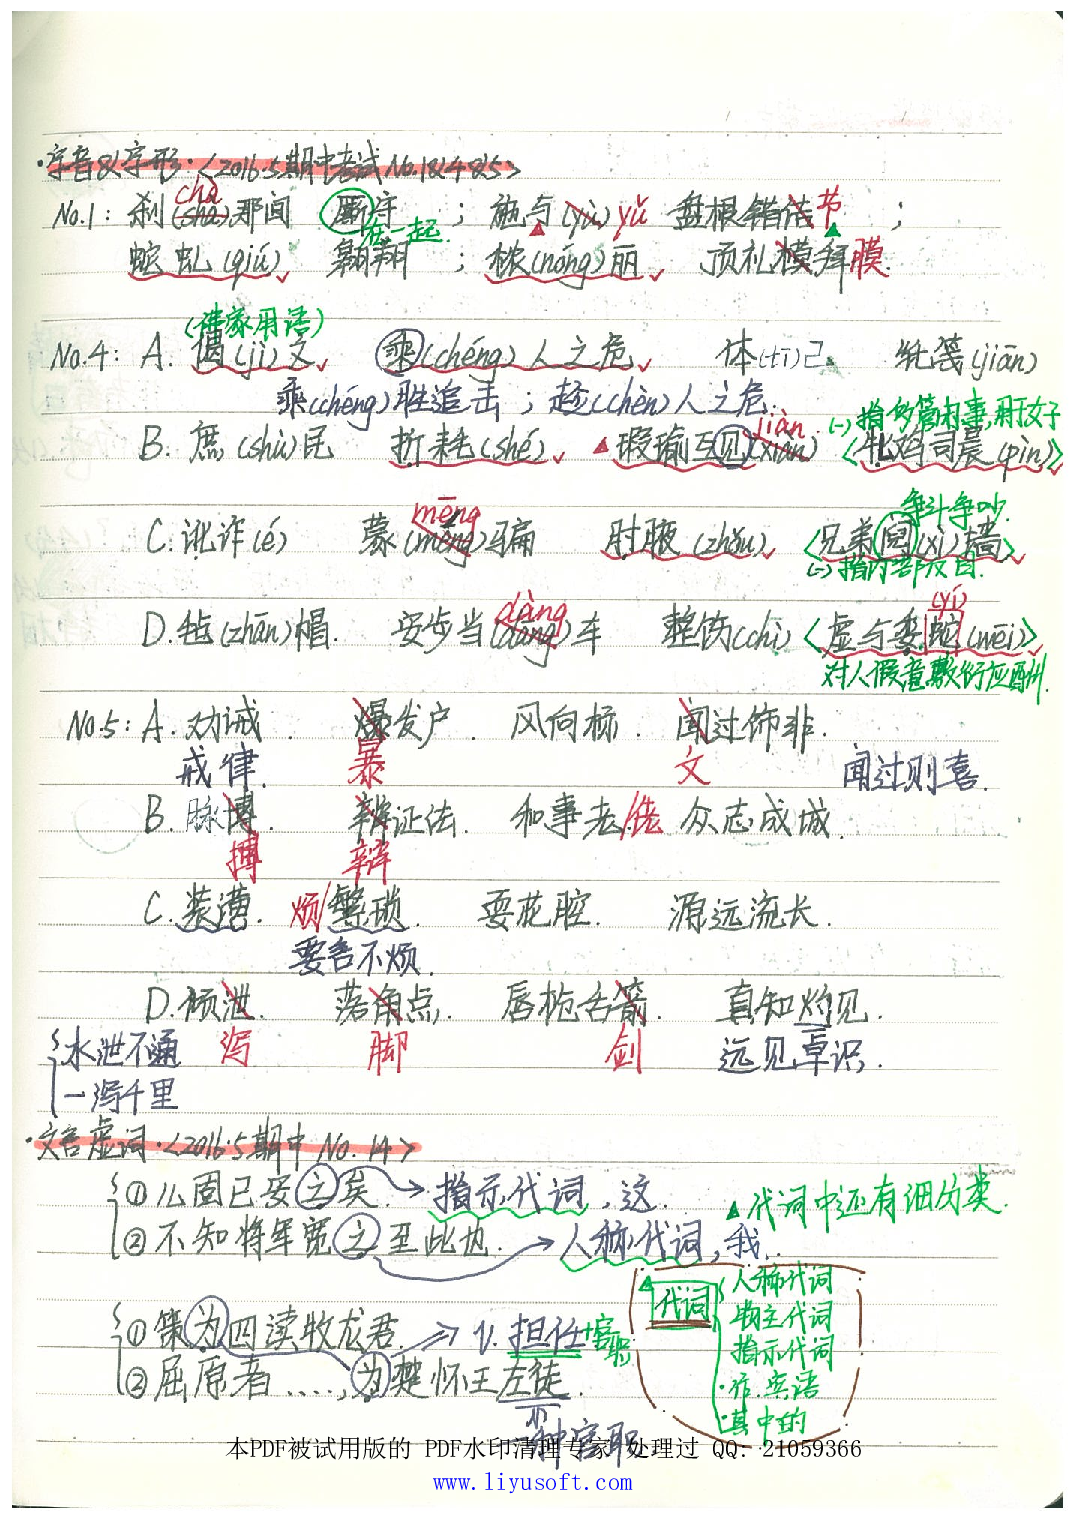 ·字音&字形·<2016.5期中考试 No.1&4&5>
chà
No.1: 刹(shà)那间 厮守 ; 施与(yù) yǔ 盘根错结 节 ;
在一起
虬(qiú) 翱翔 ; 秾(nóng)丽 顶礼模拜 膜
(佛家用语)
No.4: A. 偈(jì)文 乘(chéng)人之危 体(tī)己 纸笺(jiān)
乘(chéng)胜追击 ; 趁(chèn)人之危.
(-) 指 干事,用于女子
jiàn
B. 庶(shù)民 折耗(shé) ▲瑕瑜互见(xiàn) <牝鸡司晨(pìn)>
争斗争吵.
mēng
C. 讹诈(é) 蒙(méng)骗 肘腋(zhǒu) <兄弟阋(xì)墙>
(-) 指内部反目.
dàng (yí)
D. 毡(zhān)帽. 安步当(dāng)车 整饬(chì) <虚与委蛇(wēi)>
对人假意敷衍应酬.
No.5: A. 劝诫 . 爆发户 . 风向标 . 闻过饰非.
戒律. 暴 文 闻过则喜.
B. 脉博. 辨证法. 和事老/佬 众志成城.
搏 辩
C. 装潢. 烦/繁琐. 耍花腔. 源远流长.
要言不烦.
D. 倾泄. 落角点. 唇枪舌箭. 真知灼见.
水泄不通 泻 脚 剑 远见卓识.
一泻千里
·文言虚词·<2016.5期中 No.14>
①么固已妥之矣. → 指示代词, 这. ▲代词中还有细分类.
②不知将军宽之至此也. → 人称代词, 我.
代词 人称代词
物主代词
①策为四读牧龙君. ⇒ v. 担任+官职. 指示代词
②屈原者....,为楚怀王左徒. ·作.宾语
·其中的
一种官职
本PDF被试用版的 PDF水印清理专家 处理过 QQ: 21059366
www.liyusoft.com